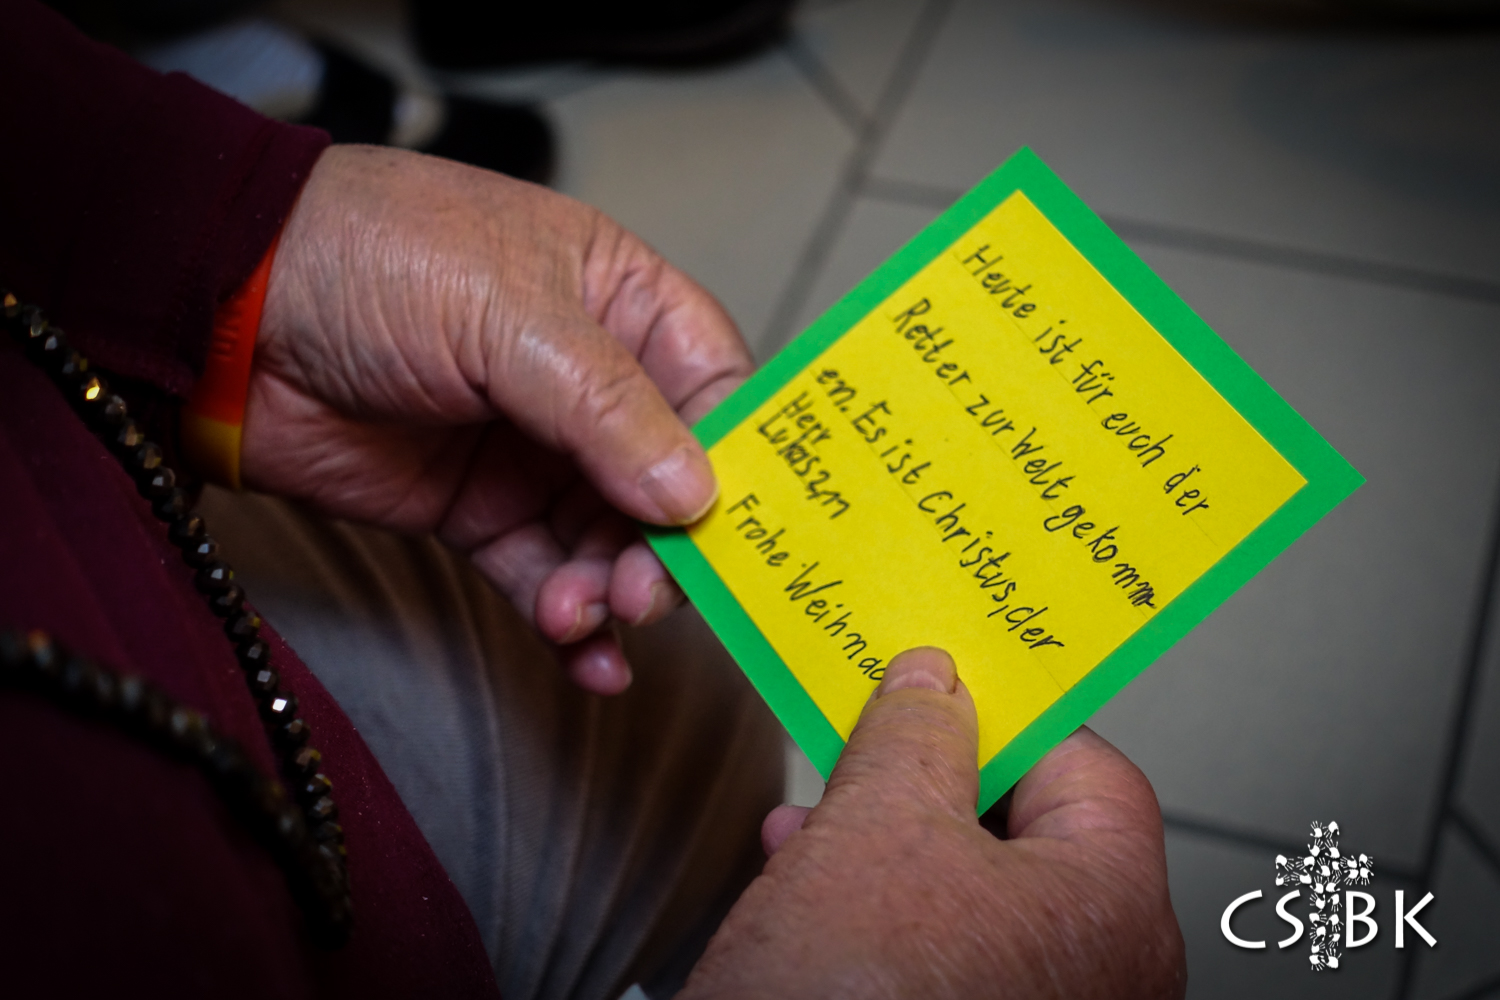 Heute ist für euch der
Retter zur Welt gekomm
en. Es ist Christus, der
Herr
Lukas 2,11
Frohe Weihnac
CSBK